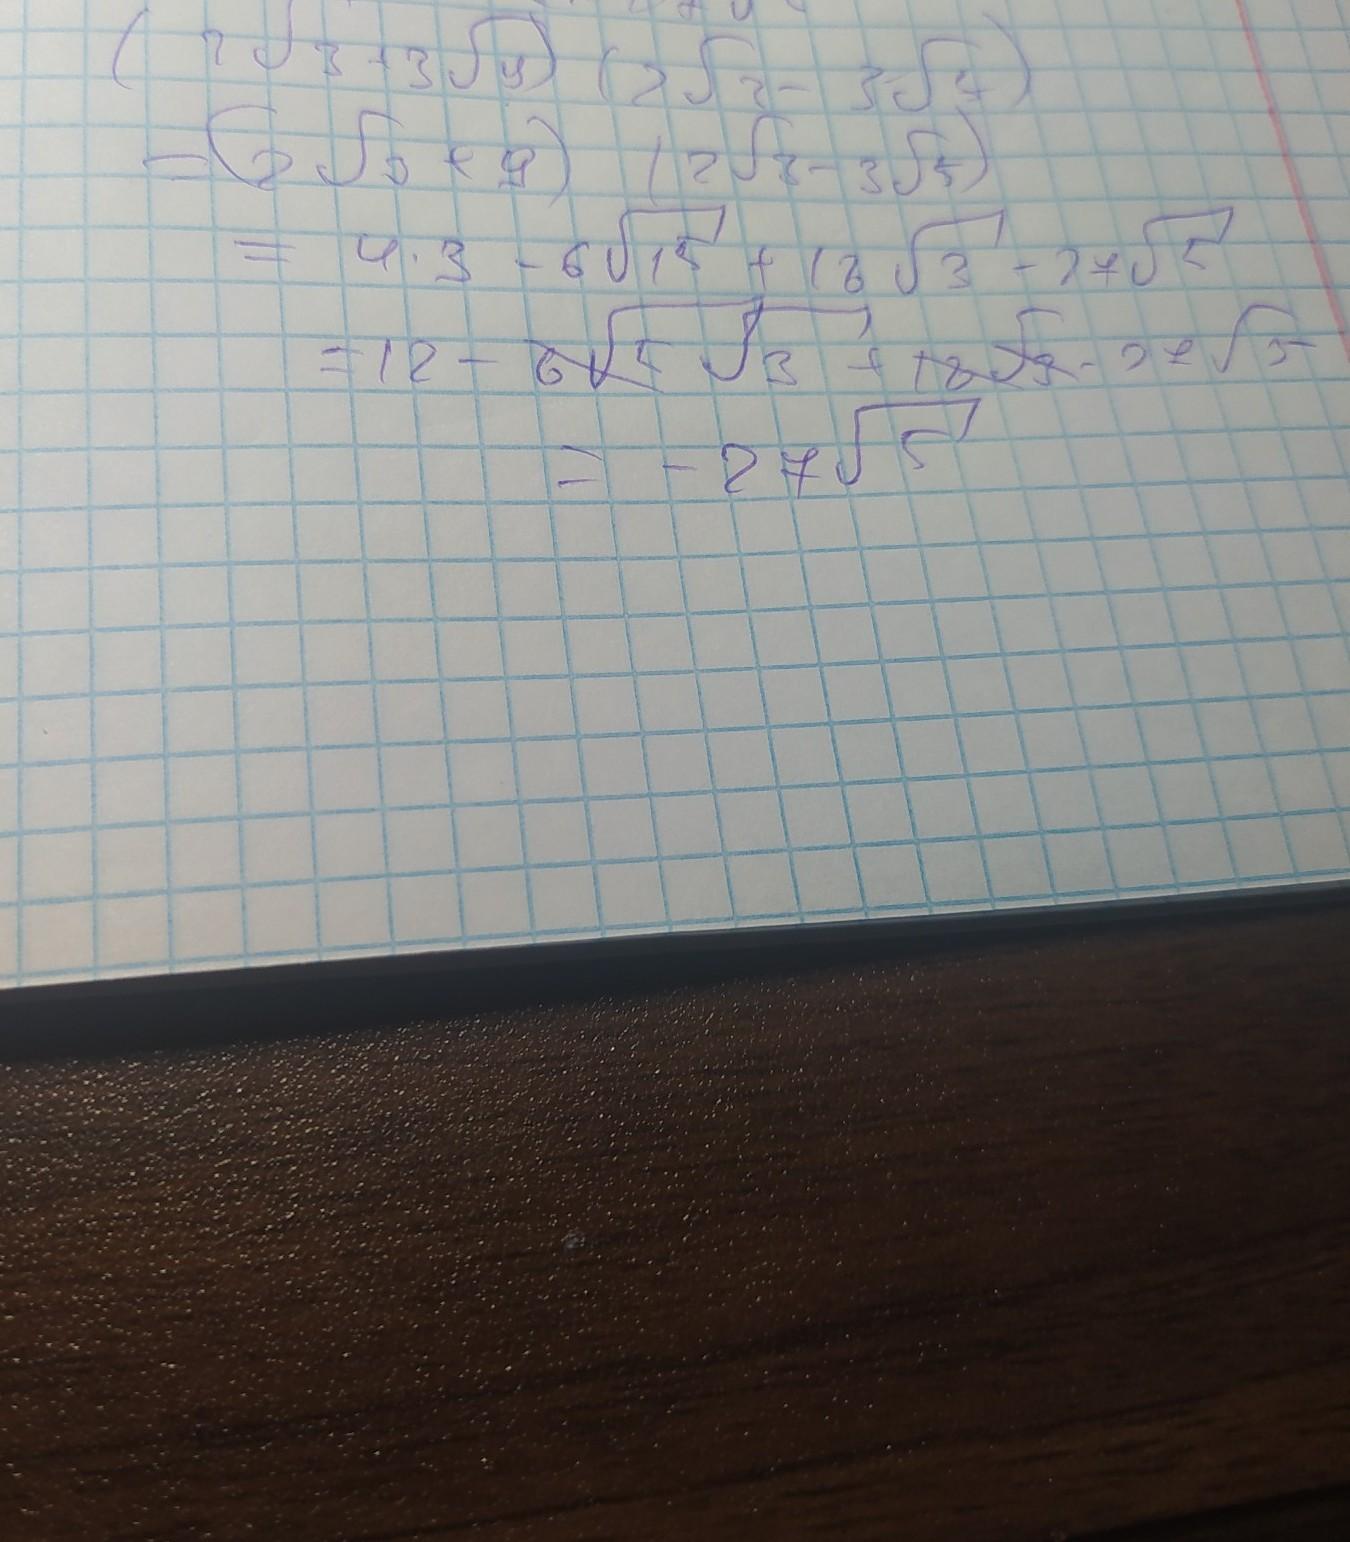 (2√3+3√9) (2√3- 3√5)
=(2√3 + 9) (2√3-3√5)
= 4·3 - 6√15 + 18√3 - 27√5
=12 - 6√5 √3 + 18√3 - 27√5
= -27√5